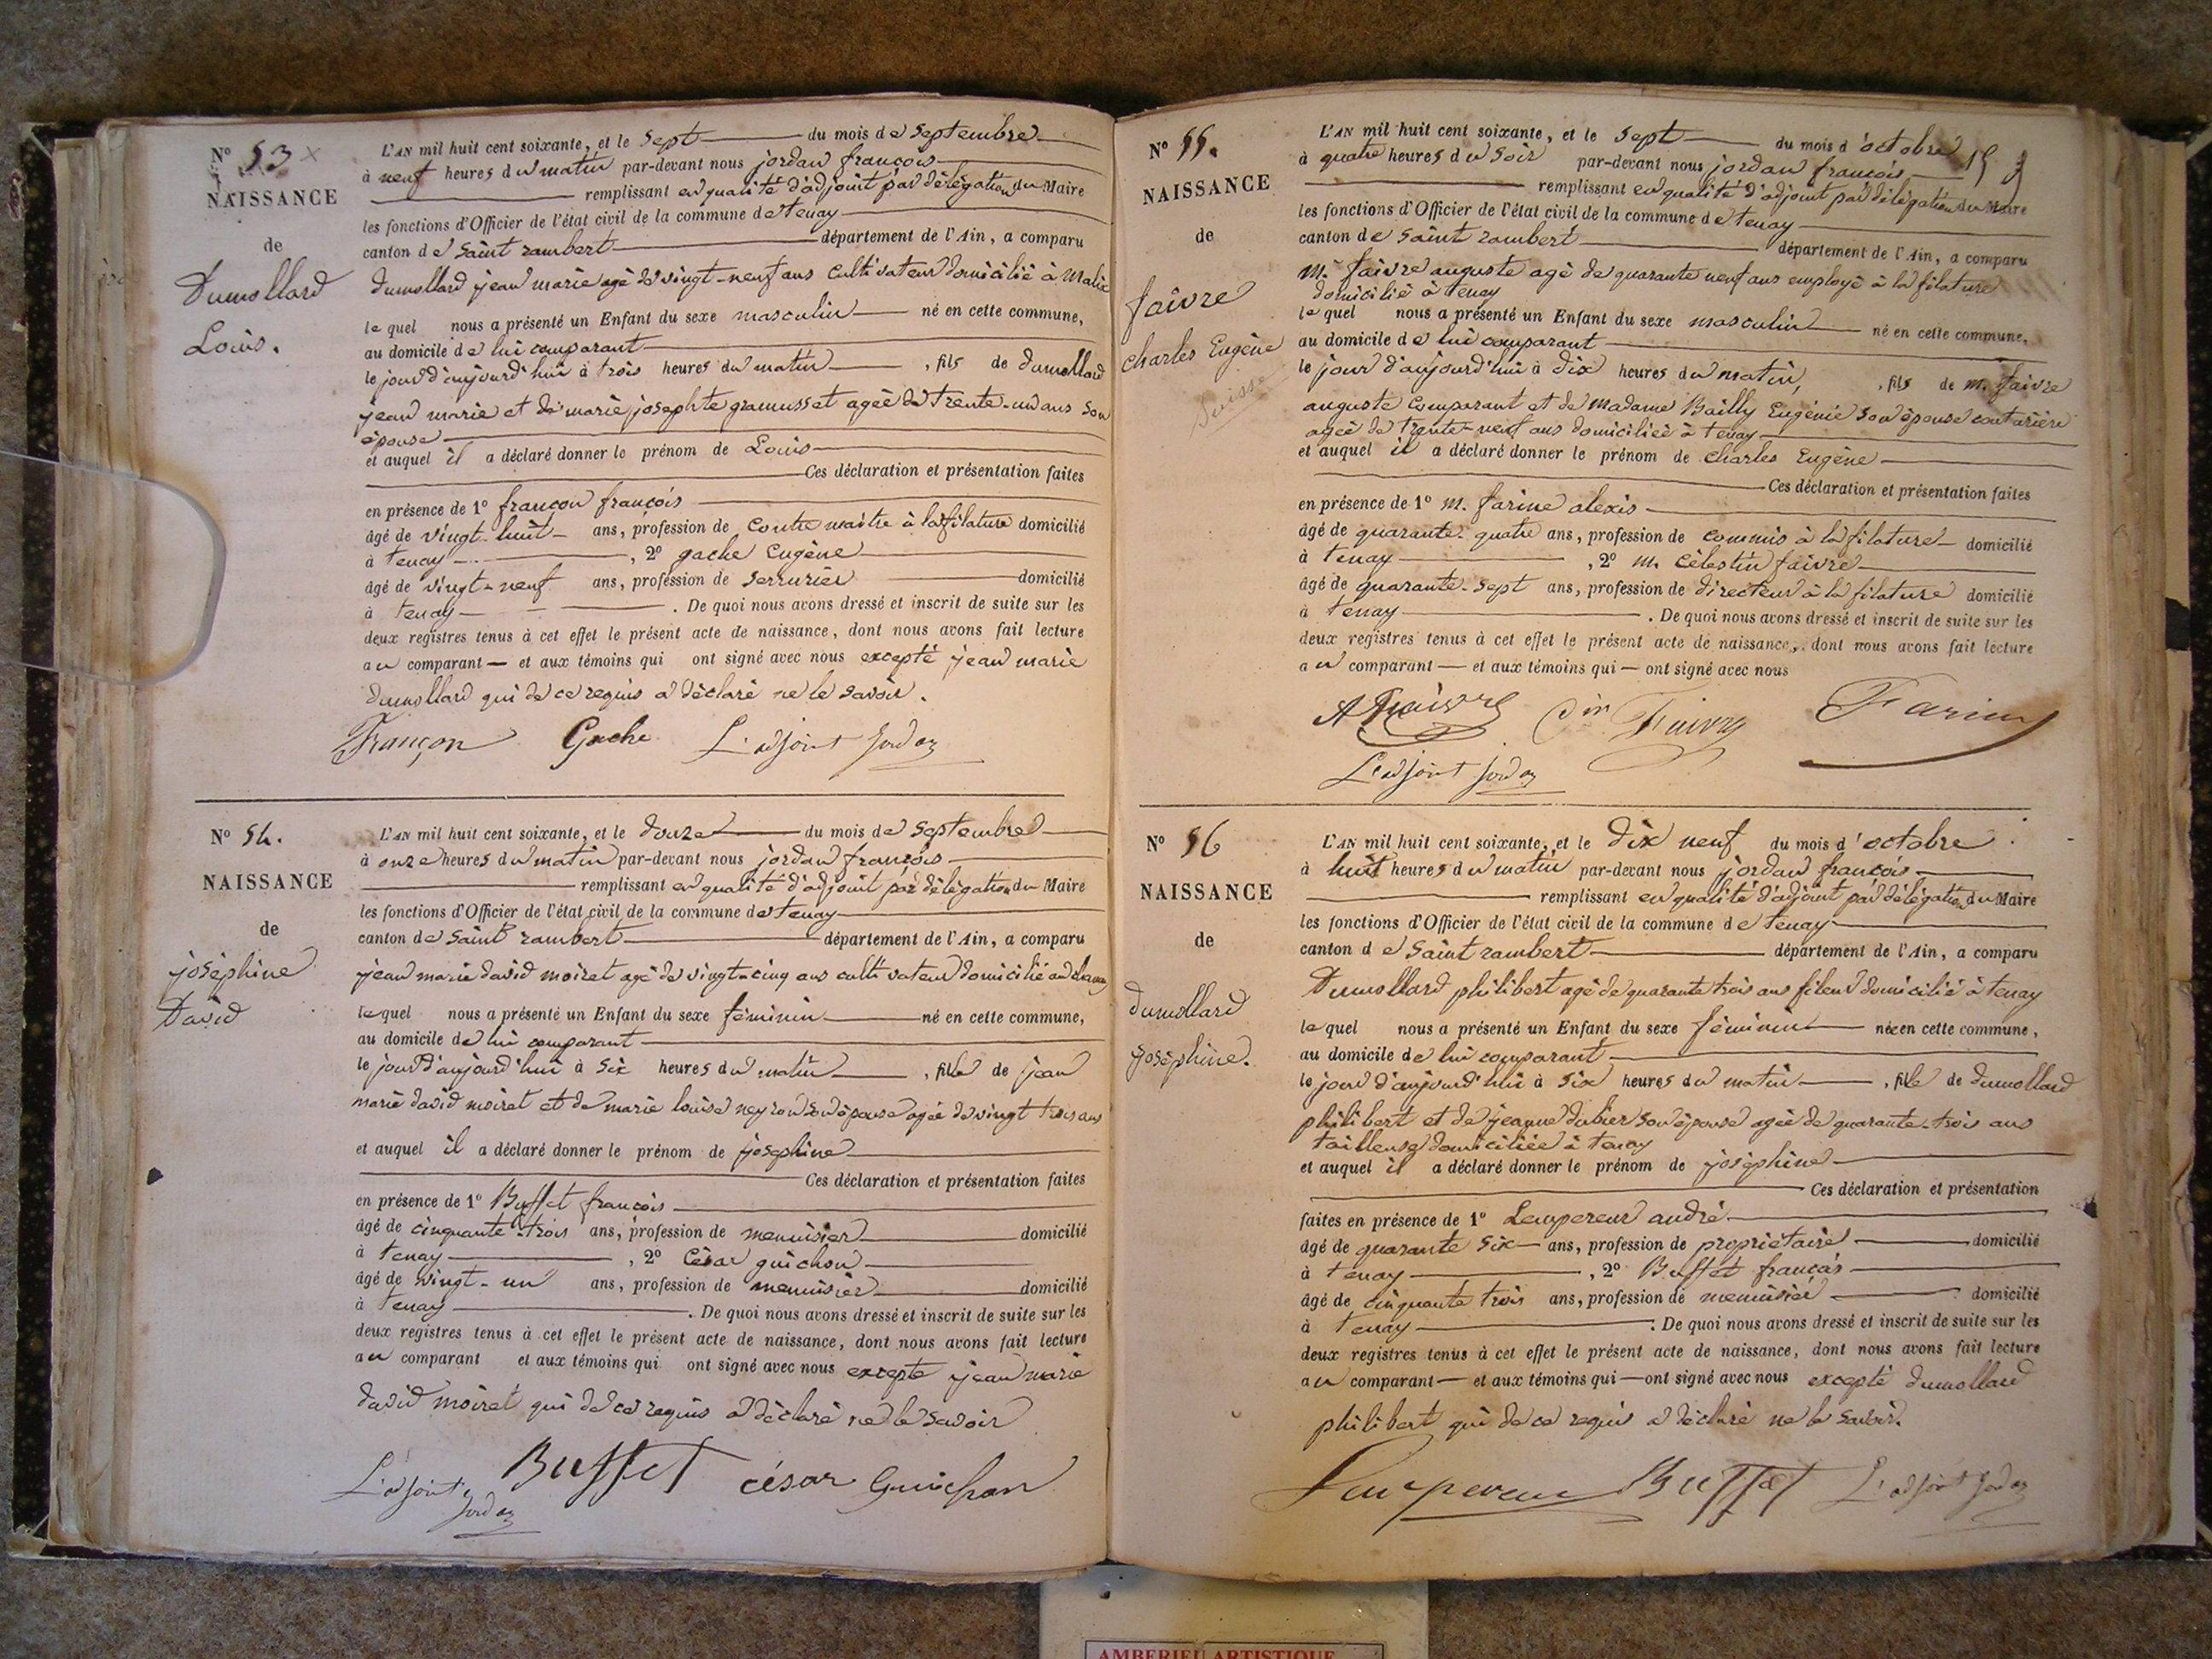 N° 53 ×
NAISSANCE
de
Dumollard
Louis.
L'AN mil huit cent soixante, et le sept du mois de septembre
à neuf heures du matin par-devant nous jordan françois
remplissant en qualité d'adjoint par délégation du Maire
les fonctions d'Officier de l'état civil de la commune de tenay
canton de saint rambert département de l'Ain, a comparu
dumollard jean marie agé de vingt-neuf ans cultivateur domicilié à Malix
le quel nous a présenté un Enfant du sexe masculin né en cette commune,
au domicile de lui comparant
le jour d'aujourd'hui à trois heures du matin, fils de dumollard
jean marie et de marie josephte gramusset agée de trente-un ans son
épouse
et auquel il a déclaré donner le prénom de Louis
Ces déclaration et présentation faites
en présence de 1° françon françois
âgé de vingt-huit ans, profession de contre maitre à la filature domicilié
à tenay, 2° gache Eugène
âgé de vingt-neuf ans, profession de serrurier domicilié
à tenay. De quoi nous avons dressé et inscrit de suite sur les
deux registres tenus à cet effet le présent acte de naissance, dont nous avons fait lecture
au comparant et aux témoins qui ont signé avec nous excepté jean marie
dumollard qui de ce requis a déclaré ne le savoir.
Françon Gache L'adjoint Jordan
N° 54.
NAISSANCE
de
joséphine
David
L'AN mil huit cent soixante, et le douze du mois de septembre
à onze heures du matin par-devant nous jordan françois
remplissant en qualité d'adjoint par délégation du Maire
les fonctions d'Officier de l'état civil de la commune de tenay
canton de saint rambert département de l'Ain, a comparu
jean marie david moiret agé de vingt-cinq ans cultivateur domicilié au
le quel nous a présenté un Enfant du sexe féminin né en cette commune,
au domicile de lui comparant
le jour d'aujourd'hui à six heures du matin, fille de jean
marie david moiret et de marie louise neyron son épouse agée de vingt trois ans
et auquel il a déclaré donner le prénom de joséphine
Ces déclaration et présentation faites
en présence de 1° Buffet françois
âgé de cinquante-trois ans, profession de menuisier domicilié
à tenay, 2° César guichon
âgé de vingt-un ans, profession de menuisier domicilié
à tenay. De quoi nous avons dressé et inscrit de suite sur les
deux registres tenus à cet effet le présent acte de naissance, dont nous avons fait lecture
au comparant et aux témoins qui ont signé avec nous excepté jean marie
david moiret qui de ce requis a déclaré ne le savoir
L'adjoint Jordan Buffet César Guichon
N° 55.
NAISSANCE
de
faivre
charles Eugène
Suisse
L'AN mil huit cent soixante, et le sept du mois d'octobre
à quatre heures du soir par-devant nous jordan françois
remplissant en qualité d'adjoint par délégation du Maire
les fonctions d'Officier de l'état civil de la commune de tenay
canton de saint rambert département de l'Ain, a comparu
M. faivre auguste agé de quarante neuf ans employé à la filature
domicilié à tenay
le quel nous a présenté un Enfant du sexe masculin né en cette commune,
au domicile de lui comparant
le jour d'aujourd'hui à dix heures du matin, fils de m. faivre
auguste comparant et de madame Bailly Eugénie son épouse couturière
agée de trente-neuf ans domiciliée à tenay
et auquel il a déclaré donner le prénom de charles Eugène
Ces déclaration et présentation faites
en présence de 1° m. farine alexis
âgé de quarante-quatre ans, profession de commis à la filature domicilié
à tenay, 2° m. Célestin faivre
âgé de quarante-sept ans, profession de directeur à la filature domicilié
à tenay. De quoi nous avons dressé et inscrit de suite sur les
deux registres tenus à cet effet le présent acte de naissance, dont nous avons fait lecture
au comparant et aux témoins qui ont signé avec nous
A Faivre Cin Faivre Farine
L'adjoint Jordan
N° 56
NAISSANCE
de
dumollard
joséphine.
L'AN mil huit cent soixante, et le dix neuf du mois d'octobre
à huit heures du matin par-devant nous jordan françois
remplissant en qualité d'adjoint par délégation du Maire
les fonctions d'Officier de l'état civil de la commune de tenay
canton de saint rambert département de l'Ain, a comparu
Dumollard philibert agé de quarante trois ans fileur domicilié à tenay
le quel nous a présenté un Enfant du sexe féminin née en cette commune,
au domicile de lui comparant
le jour d'aujourd'hui à six heures du matin, fille de dumollard
philibert et de jeanne dubier son épouse agée de quarante-trois ans
tailleuse domiciliée à tenay
et auquel il a déclaré donner le prénom de joséphine
Ces déclaration et présentation
faites en présence de 1° Lempereur andré
âgé de quarante six ans, profession de propriétaire domicilié
à tenay, 2° Buffet françois
âgé de cinquante trois ans, profession de menuisier domicilié
à tenay. De quoi nous avons dressé et inscrit de suite sur les
deux registres tenus à cet effet le présent acte de naissance, dont nous avons fait lecture
au comparant et aux témoins qui ont signé avec nous excepté dumollard
philibert qui de ce requis a déclaré ne le savoir.
Lempereur Buffet L'adjoint Jordan
AMBERIEU ARTISTIQUE